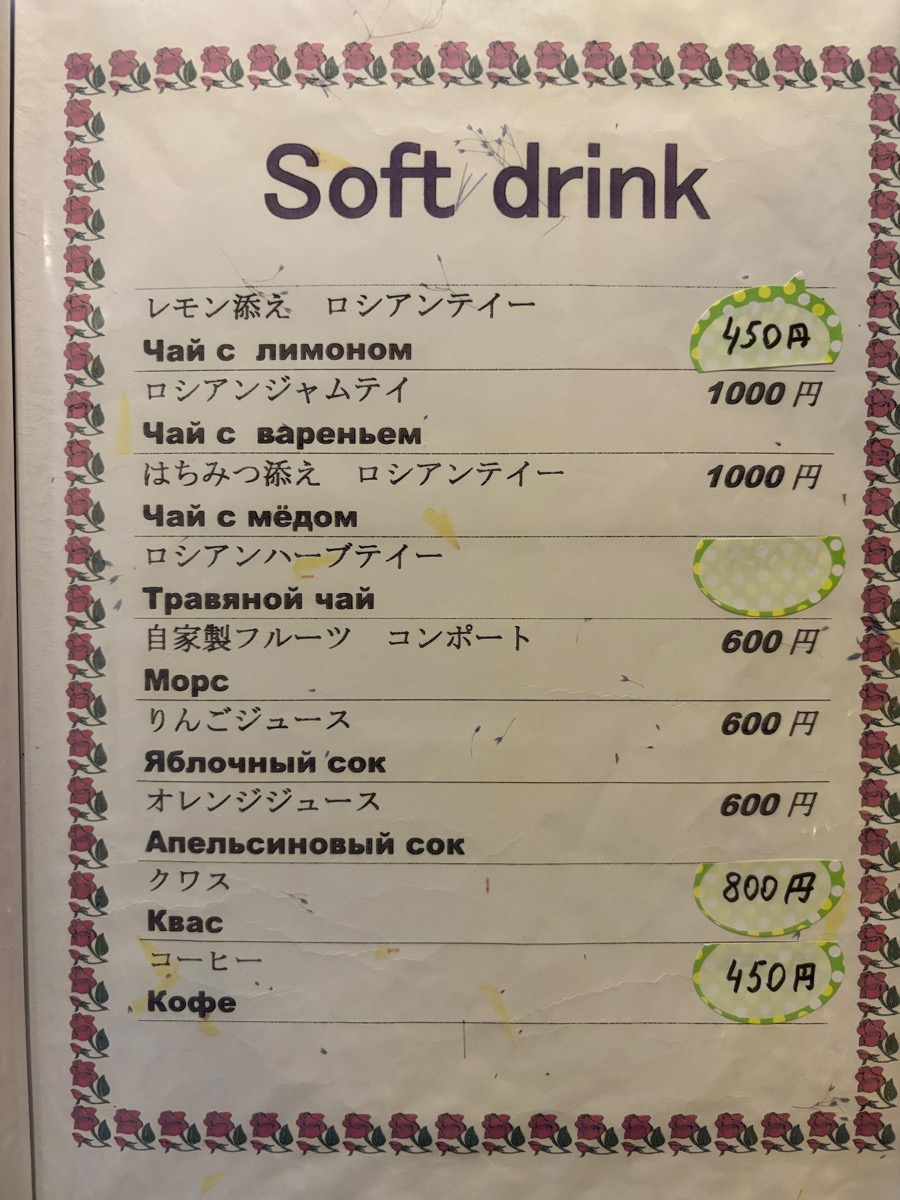 Soft drink
レモン添え　ロシアンテイー
450円
Чай с лимоном
ロシアンジャムテイ 1000円
Чай с вареньем
はちみつ添え　ロシアンテイー 1000円
Чай с мёдом
ロシアンハーブテイー
Травяной чай
自家製フルーツ　コンポート 600円
Морс
りんごジュース 600円
Яблочный сок
オレンジジュース 600円
Апельсиновый сок
クワス 800円
Квас
コーヒー 450円
Кофе